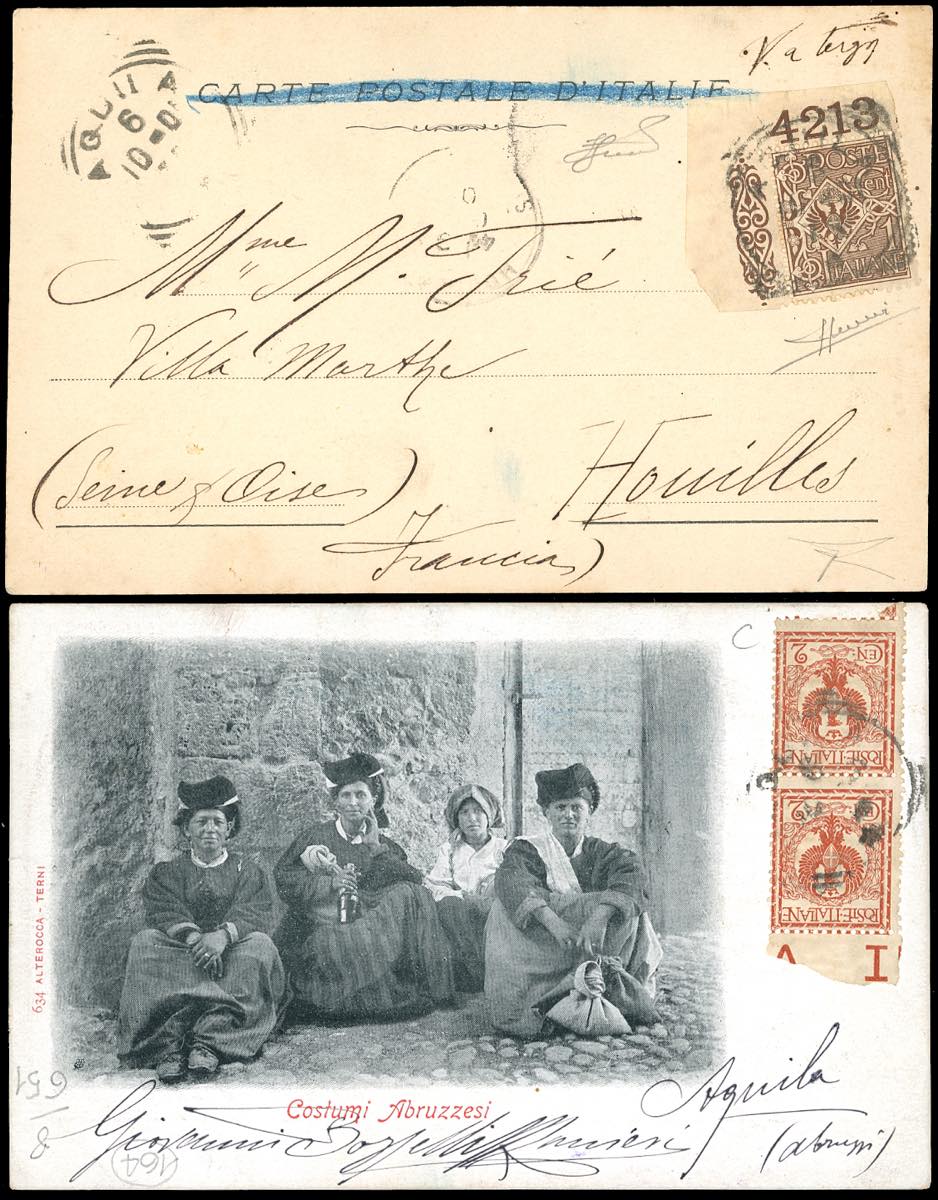 V. a tergo
CARTE POSTALE D'ITALIE
AQUILA
6
10-0
4213
POSTE
Cent
1
ITALIANE
Mme M. Trié
Villa Marthe
(Seine & Oise) Houilles
(Francia)
C
CEN. 2
POSTE-ITALIANE
CEN. 2
POSTE-ITALIANE
I A
634 ALTEROCCA - TERNI
651
8
Costumi Abruzzesi
Aquila
Giovanni Ranieri
(Abruzzi)
164